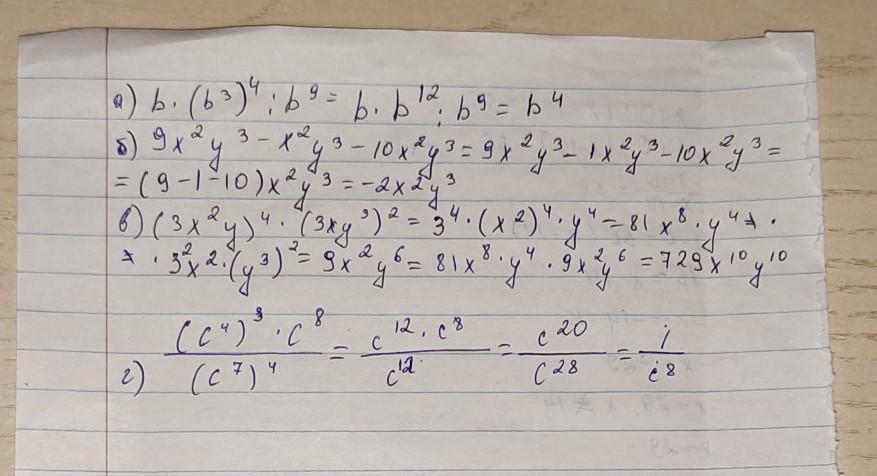 а) b · (b³)⁴ : b⁹ = b · b¹² : b⁹ = b⁴
б) 9x²y³ - x²y³ - 10x²y³ = 9x²y³ - 1x²y³ - 10x²y³ =
= (9 - 1 - 10)x²y³ = -2x²y³
в) (3x²y)⁴ · (3xy³)² = 3⁴ · (x²)⁴ · y⁴ = 81x⁸ · y⁴ ·
· 3²x² · (y³)² = 9x²y⁶ = 81x⁸ · y⁴ · 9x²y⁶ = 729x¹⁰y¹⁰
г) (c⁴)³ · c⁸ / (c⁷)⁴ = c¹² · c⁸ / c¹² = c²⁰ / c²⁸ = 1 / c⁸